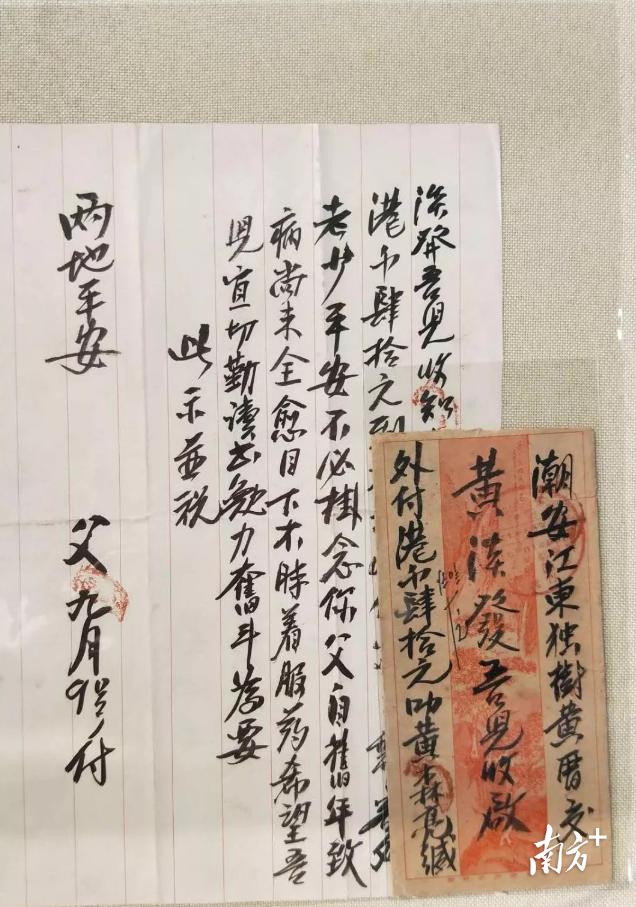 淡發吾兒收知
港币肆拾元到
老少平安不必掛念你父自舊年致
病尚未全愈目下不時着服药希望吾
兒宜切勤讀书勉力奮斗為要
此示並祝
两地平安
父 九月9号付
潮安江東独樹黄厝交
黄淡發吾兒收啟
外付港币肆拾元叻黄森亮缄
南方+